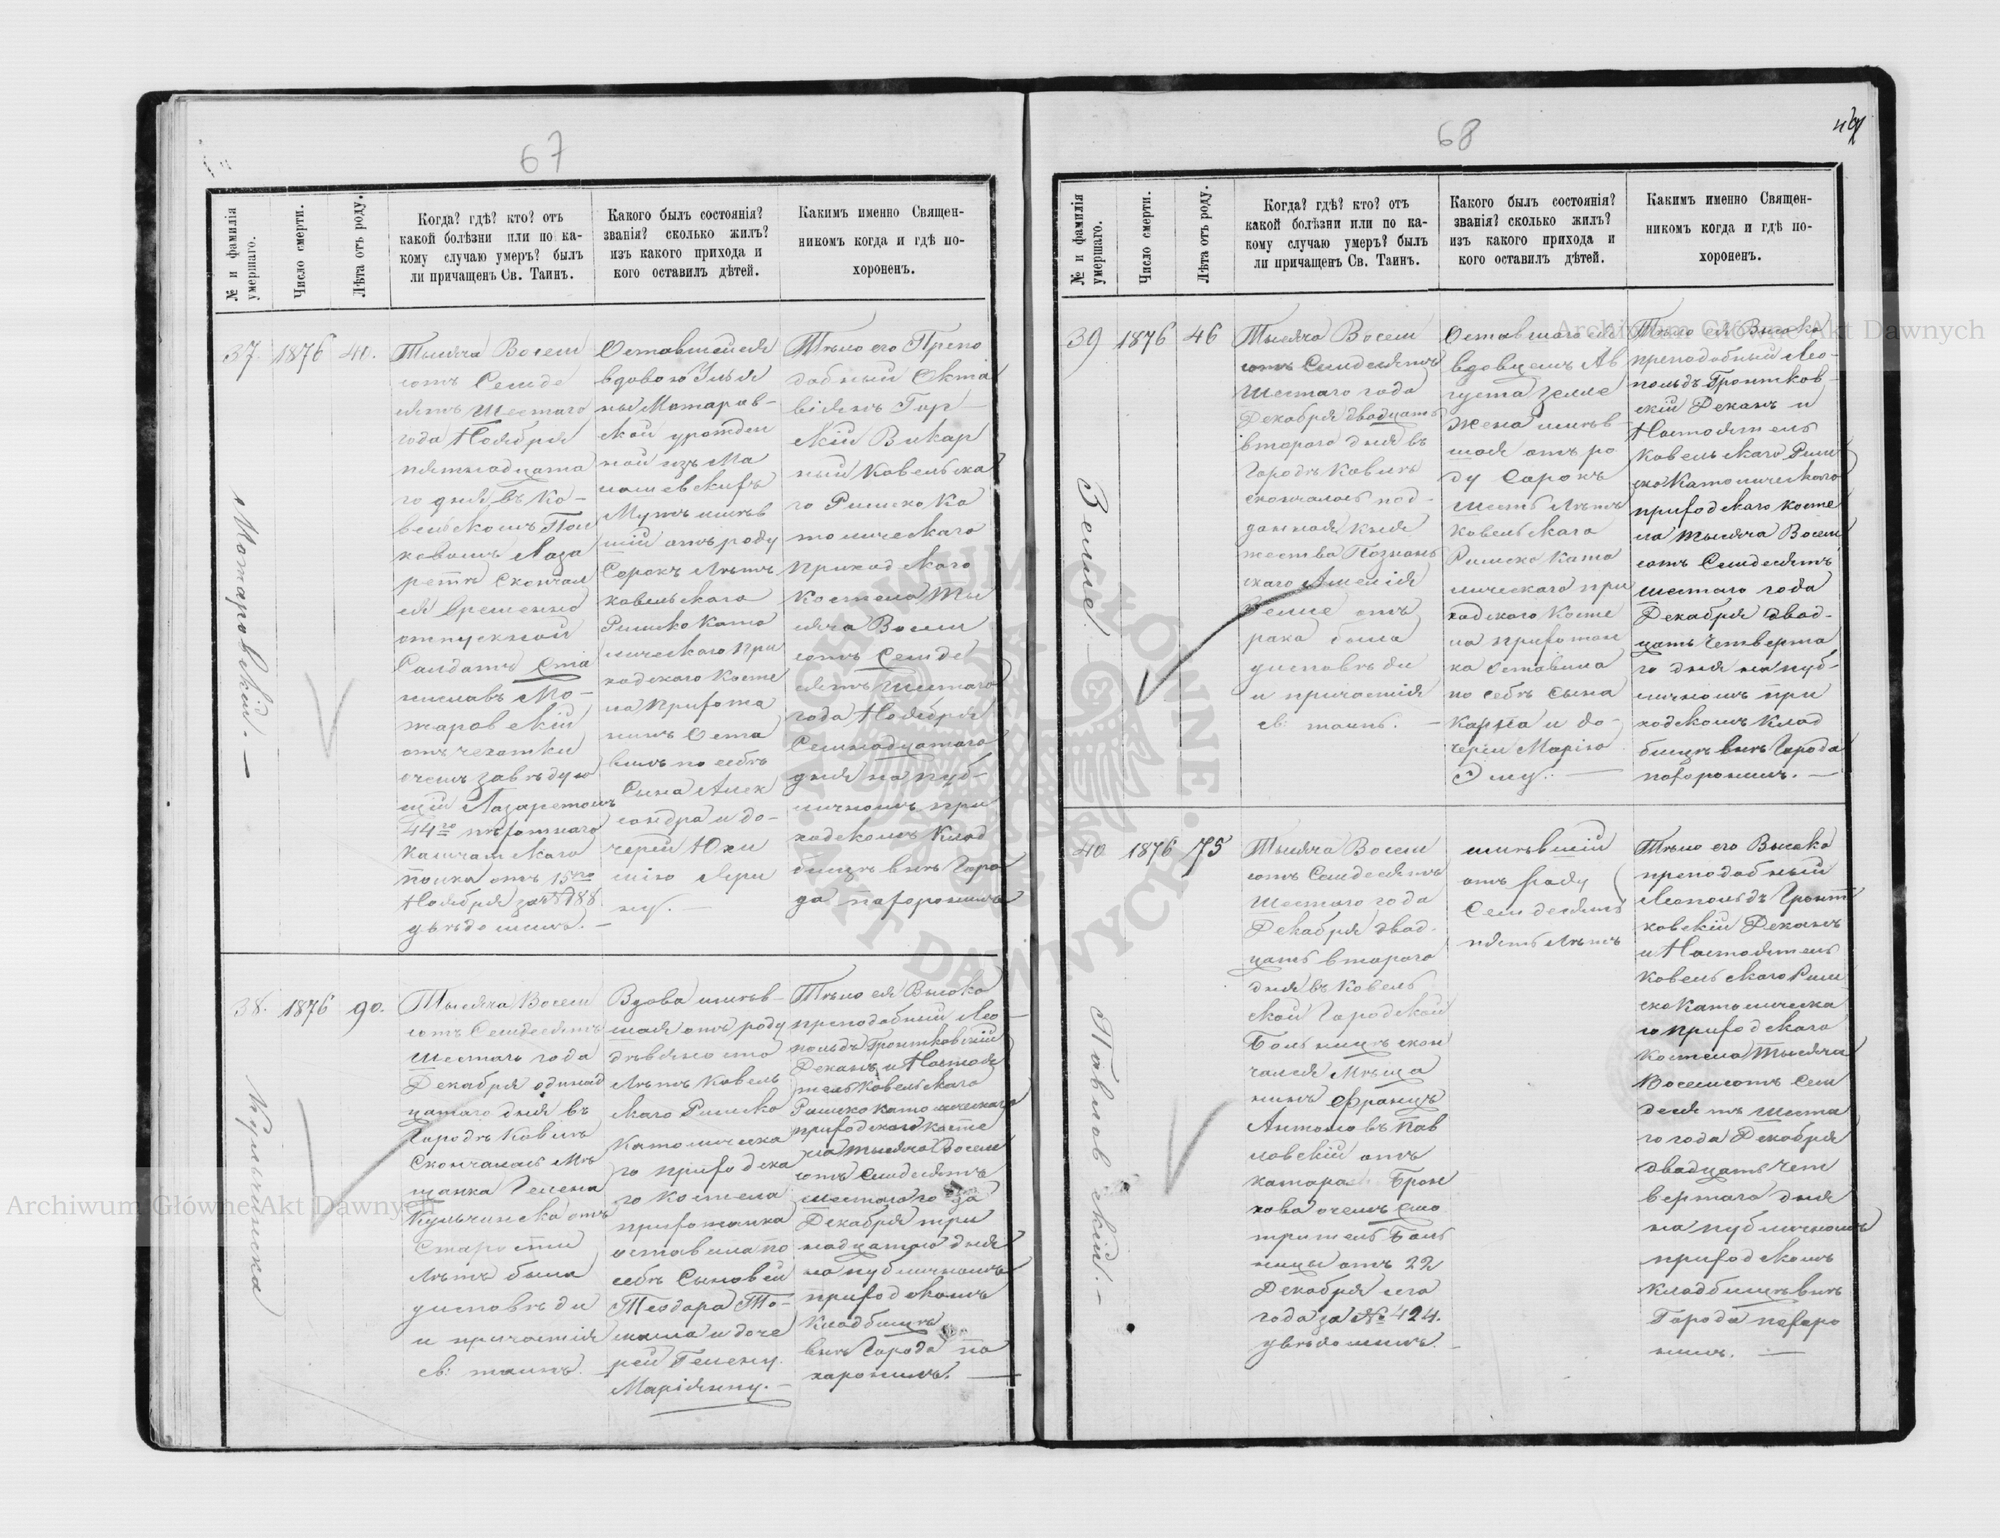 67
№ и фамилія умершаго.
Число смерти.
Лѣта отъ роду.
Когда? гдѣ? кто? отъ
какой болѣзни или по ка-
кому случаю умеръ? былъ
ли причащенъ Св. Таинъ.
Какого былъ состоянія?
званія? сколько жилъ?
изъ какого прихода и
кого оставилъ дѣтей.
Какимъ именно Священ-
никомъ когда и гдѣ по-
хороненъ.
37.
Мотаровскій. —
1876
40.
Тысяча Восем
сотъ Семьде
сятъ Шестаго
года Ноября
пятнадцата
го дня въ Ко-
вельскомъ Пол
ковомъ Лаза
ретѣ Скончал
ся Временно
отпускной
Салдатъ Ста
ниславъ Мо-
таровскій
отъ чехотки
о чемъ завѣдую
щій Лазаретомъ
44го пѣхотнаго
Камчатскаго
полка отъ 15го
Ноября за №788
увѣдомилъ. —
Оставшейся
вдовою
ны Мотаров-
ской урожден
ной изъ Ма
лашевскихъ
Мужъ имѣв
шій отъ роду
Сорокъ Лѣтъ
ковельскаго
Римско Като
лическаго При
ходскаго Косте
ла Прихожа
нинъ Оста
вилъ по себѣ
Сына Алек
сандра и до-
черей Юли
ну. —
Тѣло его Препо
добный Окта
віянъ Гор
скій Викар
ный Ковельска
го Римско Ка
толическаго
Приходскаго
Костела Ты
сяча Восем
сотъ Семьде
сятъ Шестаго
года Ноября
Семнадцатаго
дня на пуб-
личномъ при
ходскомъ Клад
бищѣ внѣ Горо
да похоронилъ
38.
Кульчинска
1876
90.
Тысяча Восем
сотъ Семьдесятъ
Шестаго года
Декабря одинад
цатаго дня въ
Городѣ Ковлѣ
Скончалась Мѣ
щанка Гелена
Кульчинска отъ
Старости
лѣтъ была
у исповѣди
и причастія
св: таинъ.
Вдова имѣв-
шая отъ роду
дѣвяносто
Лѣтъ Ковель
скаго Римско
Католическа
го приходска
го костела
прихожанка
оставила по
себѣ Сыновей
Теодора То-
маша и доче
рей Гелену
Маріянну. —
Тѣло ея Высоко
преподобный Лео
польдъ Гронтковскій
Деканъ и Настоя
тель Ковельскаго
Римско католическаго
приходскаго косте
ла тысяча Восем
сотъ Семьдесятъ
шестаго года
Декабря три
надцатаго дня
на публичномъ
приходскомъ
Кладбищѣ
внѣ Города по
харонилъ. —
68
№ и фамилія умершаго.
Число смерти.
Лѣта отъ роду.
Когда? гдѣ? кто? отъ
какой болѣзни или по ка-
кому случаю умеръ? былъ
ли причащенъ Св. Таинъ.
Какого былъ состоянія?
званія? сколько жилъ?
изъ какого прихода и
кого оставилъ дѣтей.
Какимъ именно Священ-
никомъ когда и гдѣ по-
хороненъ.
39
Зелле.
1876
46
Тысяча Восем
сотъ Семьдесятъ
Шестаго года
Декабря двадцать
втораго дня въ
Городѣ Ковлѣ
скончалась под-
данная Кня
жества Познань
скаго Амелія
Зелле отъ
рака была
у исповѣди
и причастія
св: таинъ. —
Оставшаго ся
вдовцемъ Ав
густа Зелле
жена имѣв
шая отъ ро
ду Сорокъ
шесть Лѣтъ
Ковельскаго
Римско Като
лическаго при
ходскаго Косте
ла прихожан
ка оставила
по себѣ Сына
Карла и до-
черей Марію
Эму. —
Тѣло ея Высоко
преподобный Лео
польдъ Гронтков-
скій Деканъ и
Настоятель
Ковельскаго Рим
ско Католическаго
приходскаго косте
ла тысяча Восем
сотъ Семьдесятъ
шестаго года
Декабря двад-
цать четверта
го дня на пуб-
личномъ при
ходскомъ Клад
бищѣ внѣ Города
похоронилъ. —
40
Павловскій. —
1876
75
Тысяча Восем
сотъ Семьдесятъ
Шестаго года
Декабря двад-
цать втораго
дня въ Ковель
ской Городской
Больницѣ скон
чался Мѣща
нинъ Францъ
Антоновъ Пав
ловскій отъ
катара Брон
хова о чемъ смо
тритель Боль
ницы отъ 22
Декабря сего
года за № 424.
увѣдомилъ. —
имѣвшій
отъ роду
Семьдесятъ
пять Лѣтъ
Тѣло его Высоко
преподобный
Леопольдъ Гронт
ковскій Деканъ
и Настоятель
Ковельскаго Рим
ско Католическа
го приходскаго
Костела Тысяча
Восемсотъ Сем
десятъ шеста
го года Декабря
двадцать чет
вертаго дня
на публичномъ
приходскомъ
кладбищѣ внѣ
Города похоро
нилъ. —
Archiwum Główne Akt Dawnych
Archiwum Główne Akt Dawnych
ARCHIWUM GŁÓWNE AKT DAWNYCH